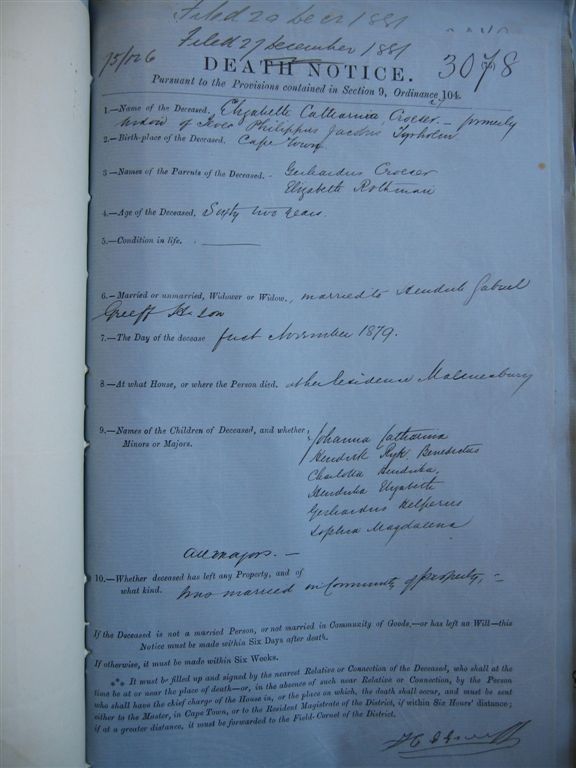 Filed 29 Decr 1881
Filed 29 December 1881
75/126
DEATH NOTICE.
3078
Pursuant to the Provisions contained in Section 9, Ordinance 104.
1.—Name of the Deceased. Elizabeth Catharina Croeser — formerly
widow of Philippus Jacobus
2.—Birth-place of the Deceased. Cape Town
3—Names of the Parents of the Deceased. - Gerhardus Croeser
Elizabeth Rothman
4.—Age of the Deceased. Sixty two years.
5.—Condition in life.
6.—Married or unmarried, Widower or Widow., married to Hendrik Gabriel
Greeff
7.—The Day of the decease first November 1879.
8.—At what House, or where the Person died. at her residence Malmesbury
9.—Names of the Children of Deceased, and whether Johanna Catharina
Minors or Majors. Hendrik Ryk Benedictus
Charlotta Hendrika,
Hendrika Elizabeth
Gerhardus Helperus
Sophia Magdalena
All majors. —
10.—Whether deceased has left any Property, and of
what kind. was married in Community of property, =
If the Deceased is not a married Person, or not married in Community of Goods,—or has left no Will—this
Notice must be made within Six Days after death.
If otherwise, it must be made within Six Weeks.
*** It must be filled up and signed by the nearest Relative or Connection of the Deceased, who shall at the
time be at or near the place of death—or, in the absence of such near Relative or Connection, by the Person
who shall have the chief charge of the House in, or the place on which, the death shall occur, and must be sent
either to the Master, in Cape Town, or to the Resident Magistrate of the District, if within Six Hours' distance;
if at a greater distance, it must be forwarded to the Field-Cornet of the District.